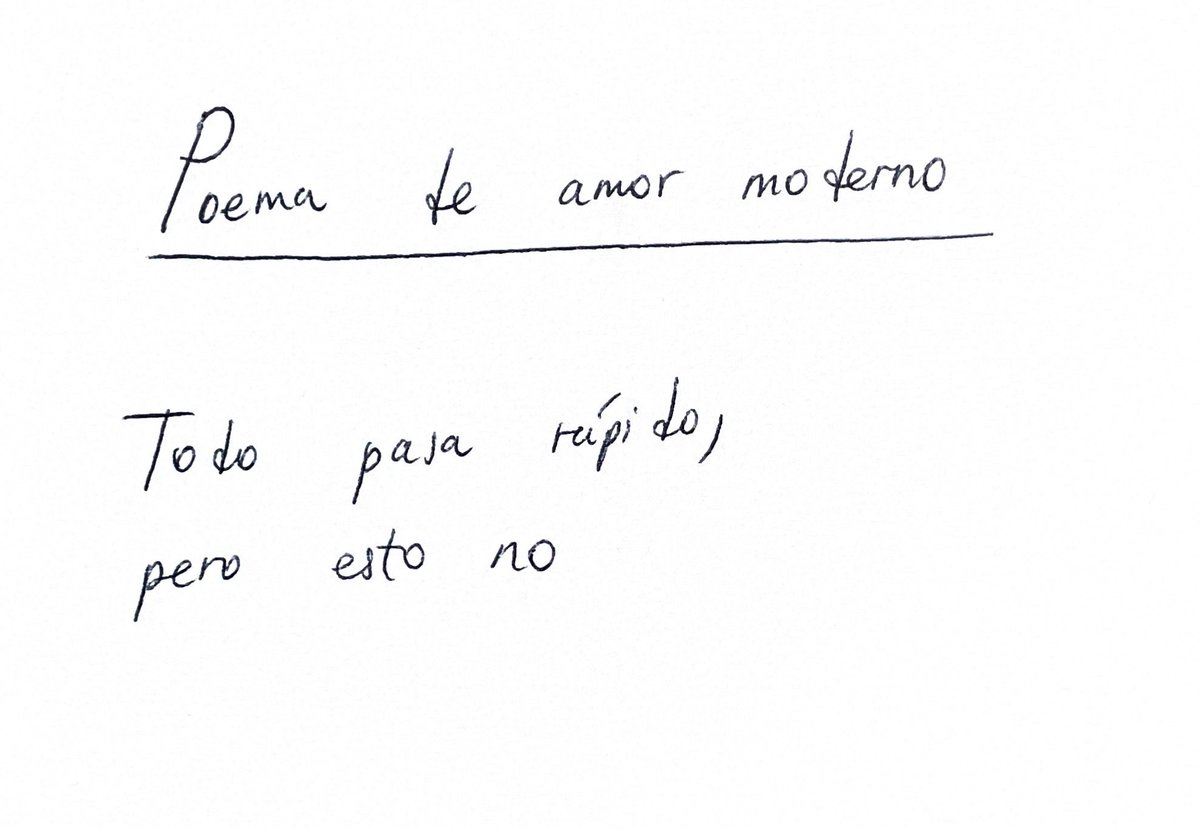 Poema de amor moderno
Todo pasa rápido,
pero esto no